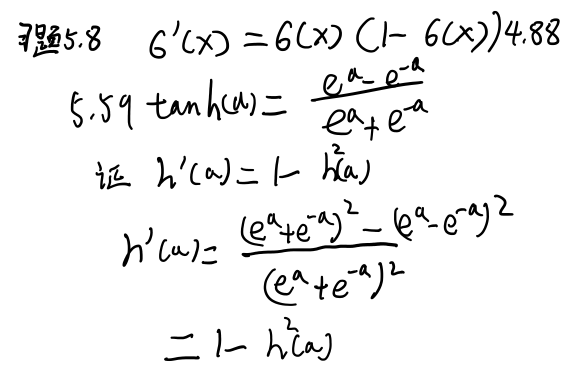 习题5.8 6'(x) = 6(x) (1- 6(x)) 4.88
5.59 tanh(a) = (e^a - e^-a) / (e^a + e^-a)
证 h'(a) = 1 - h²(a)
h'(a) = ((e^a + e^-a)² - (e^a - e^-a)²) / (e^a + e^-a)²
= 1 - h²(a)